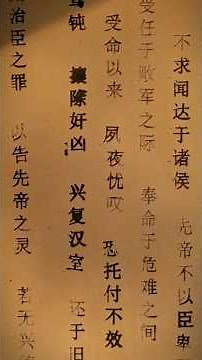 不求闻达于诸侯 先帝不以臣卑
受任于败军之际 奉命于危难之间
受命以来 夙夜忧叹 恐托付不效
驽钝 攘除奸凶 兴复汉室 还于旧
治臣之罪 以告先帝之灵 若无兴